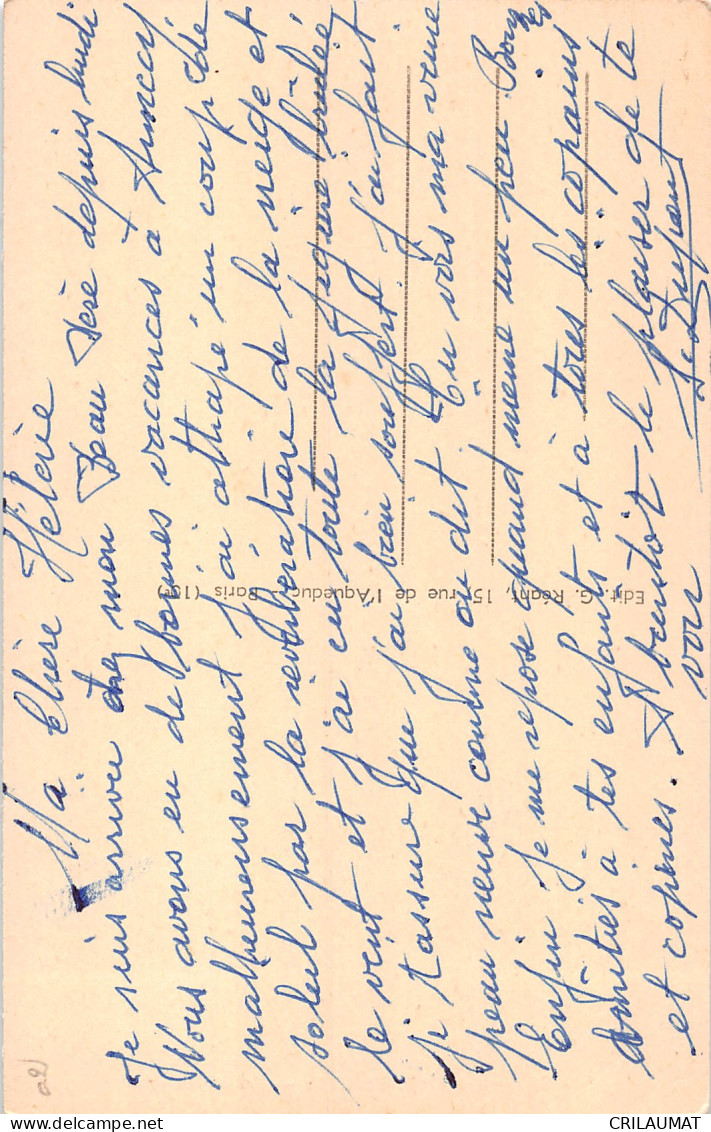 Ma Chère Hélène
Je suis arriver chez mon Beau Père depuis lundi
Nous avons eu de bonnes vacances à Annecy
malheureusement j'ai attrapé un coup de
soleil par la réverbération de la neige et
le vent et j'ai eu toute la figure brulée
je t'assure que j'ai bien souffert. j'ai fait
peau neuve comme on dit. Tu vois ma veine
Enfin je me repose quand même un peu. Bons
Amitiés à tes enfants et à tous les copains
et copines. A bientot le plaisir de te
voir
Edit. G. Réant, 15, rue de l'Aqueduc - Paris (10e)
CRILAUMAT